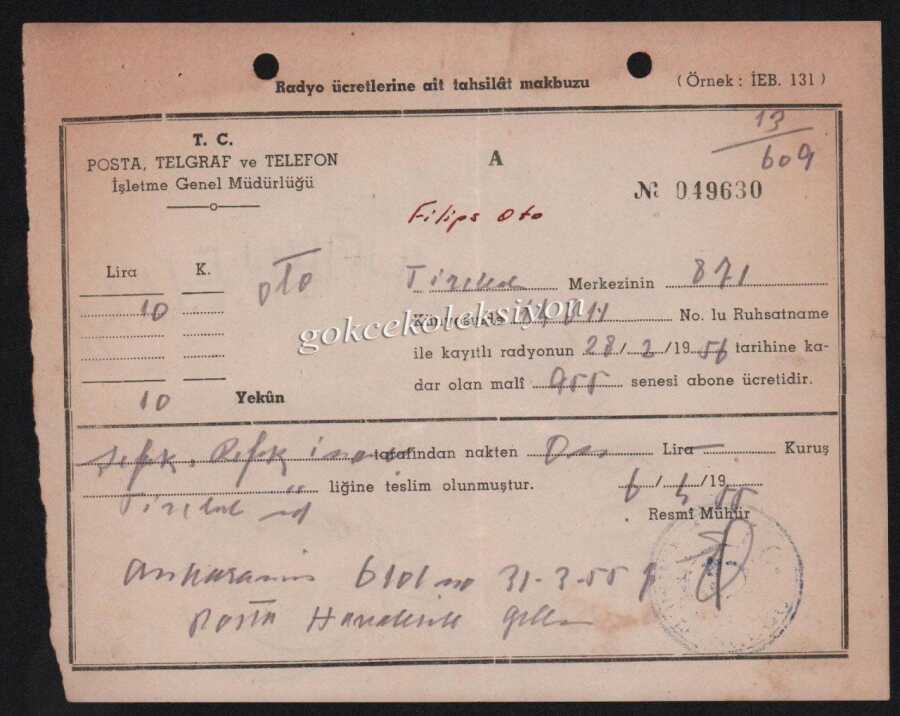 Radyo ücretlerine ait tahsilât makbuzu (Örnek : İEB. 131)
13
609
T. C.
POSTA, TELGRAF ve TELEFON
İşletme Genel Müdürlüğü
A
№ 049630
Filips oto
Lira K.
oto
Merkezinin 871
10
No. lu Ruhsatname
gokcekoleksiyon
ile kayıtlı radyonun 28/2/1956 tarihine ka-
dar olan malî 955 senesi abone ücretidir.
10 Yekûn
tarafından nakten On Lira Kuruş
liğine teslim olunmuştur. 6/ /1955
Resmî Mühür
Ankaranın 6101 no 31-3-55
Posta Havalesile